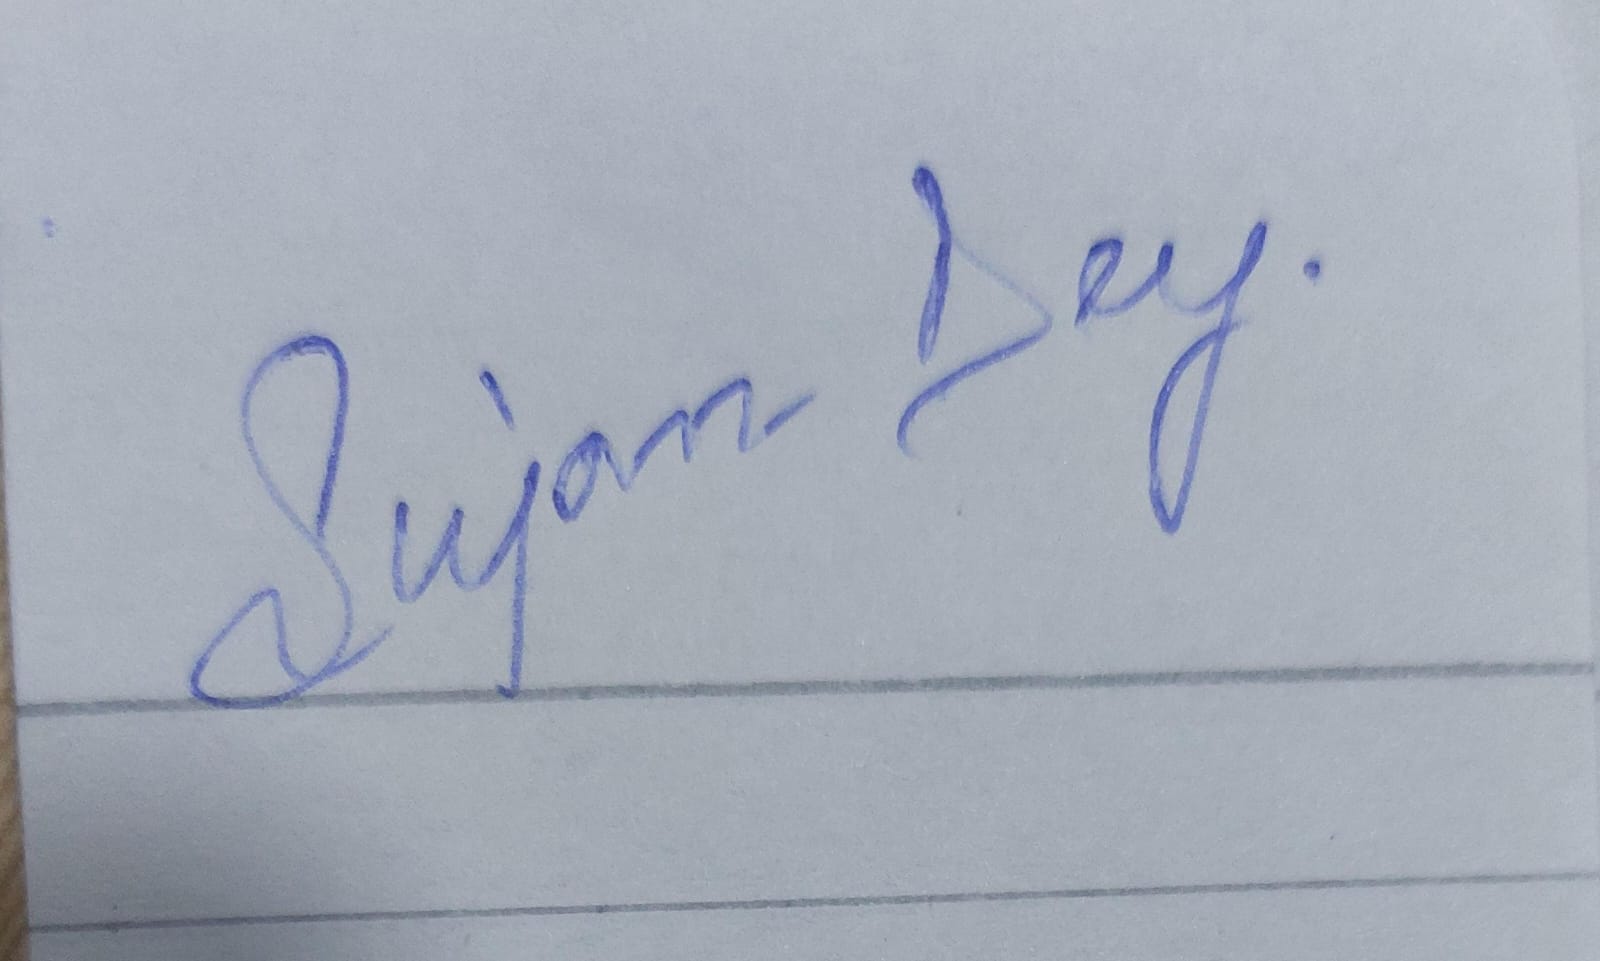 Sujan Dey.